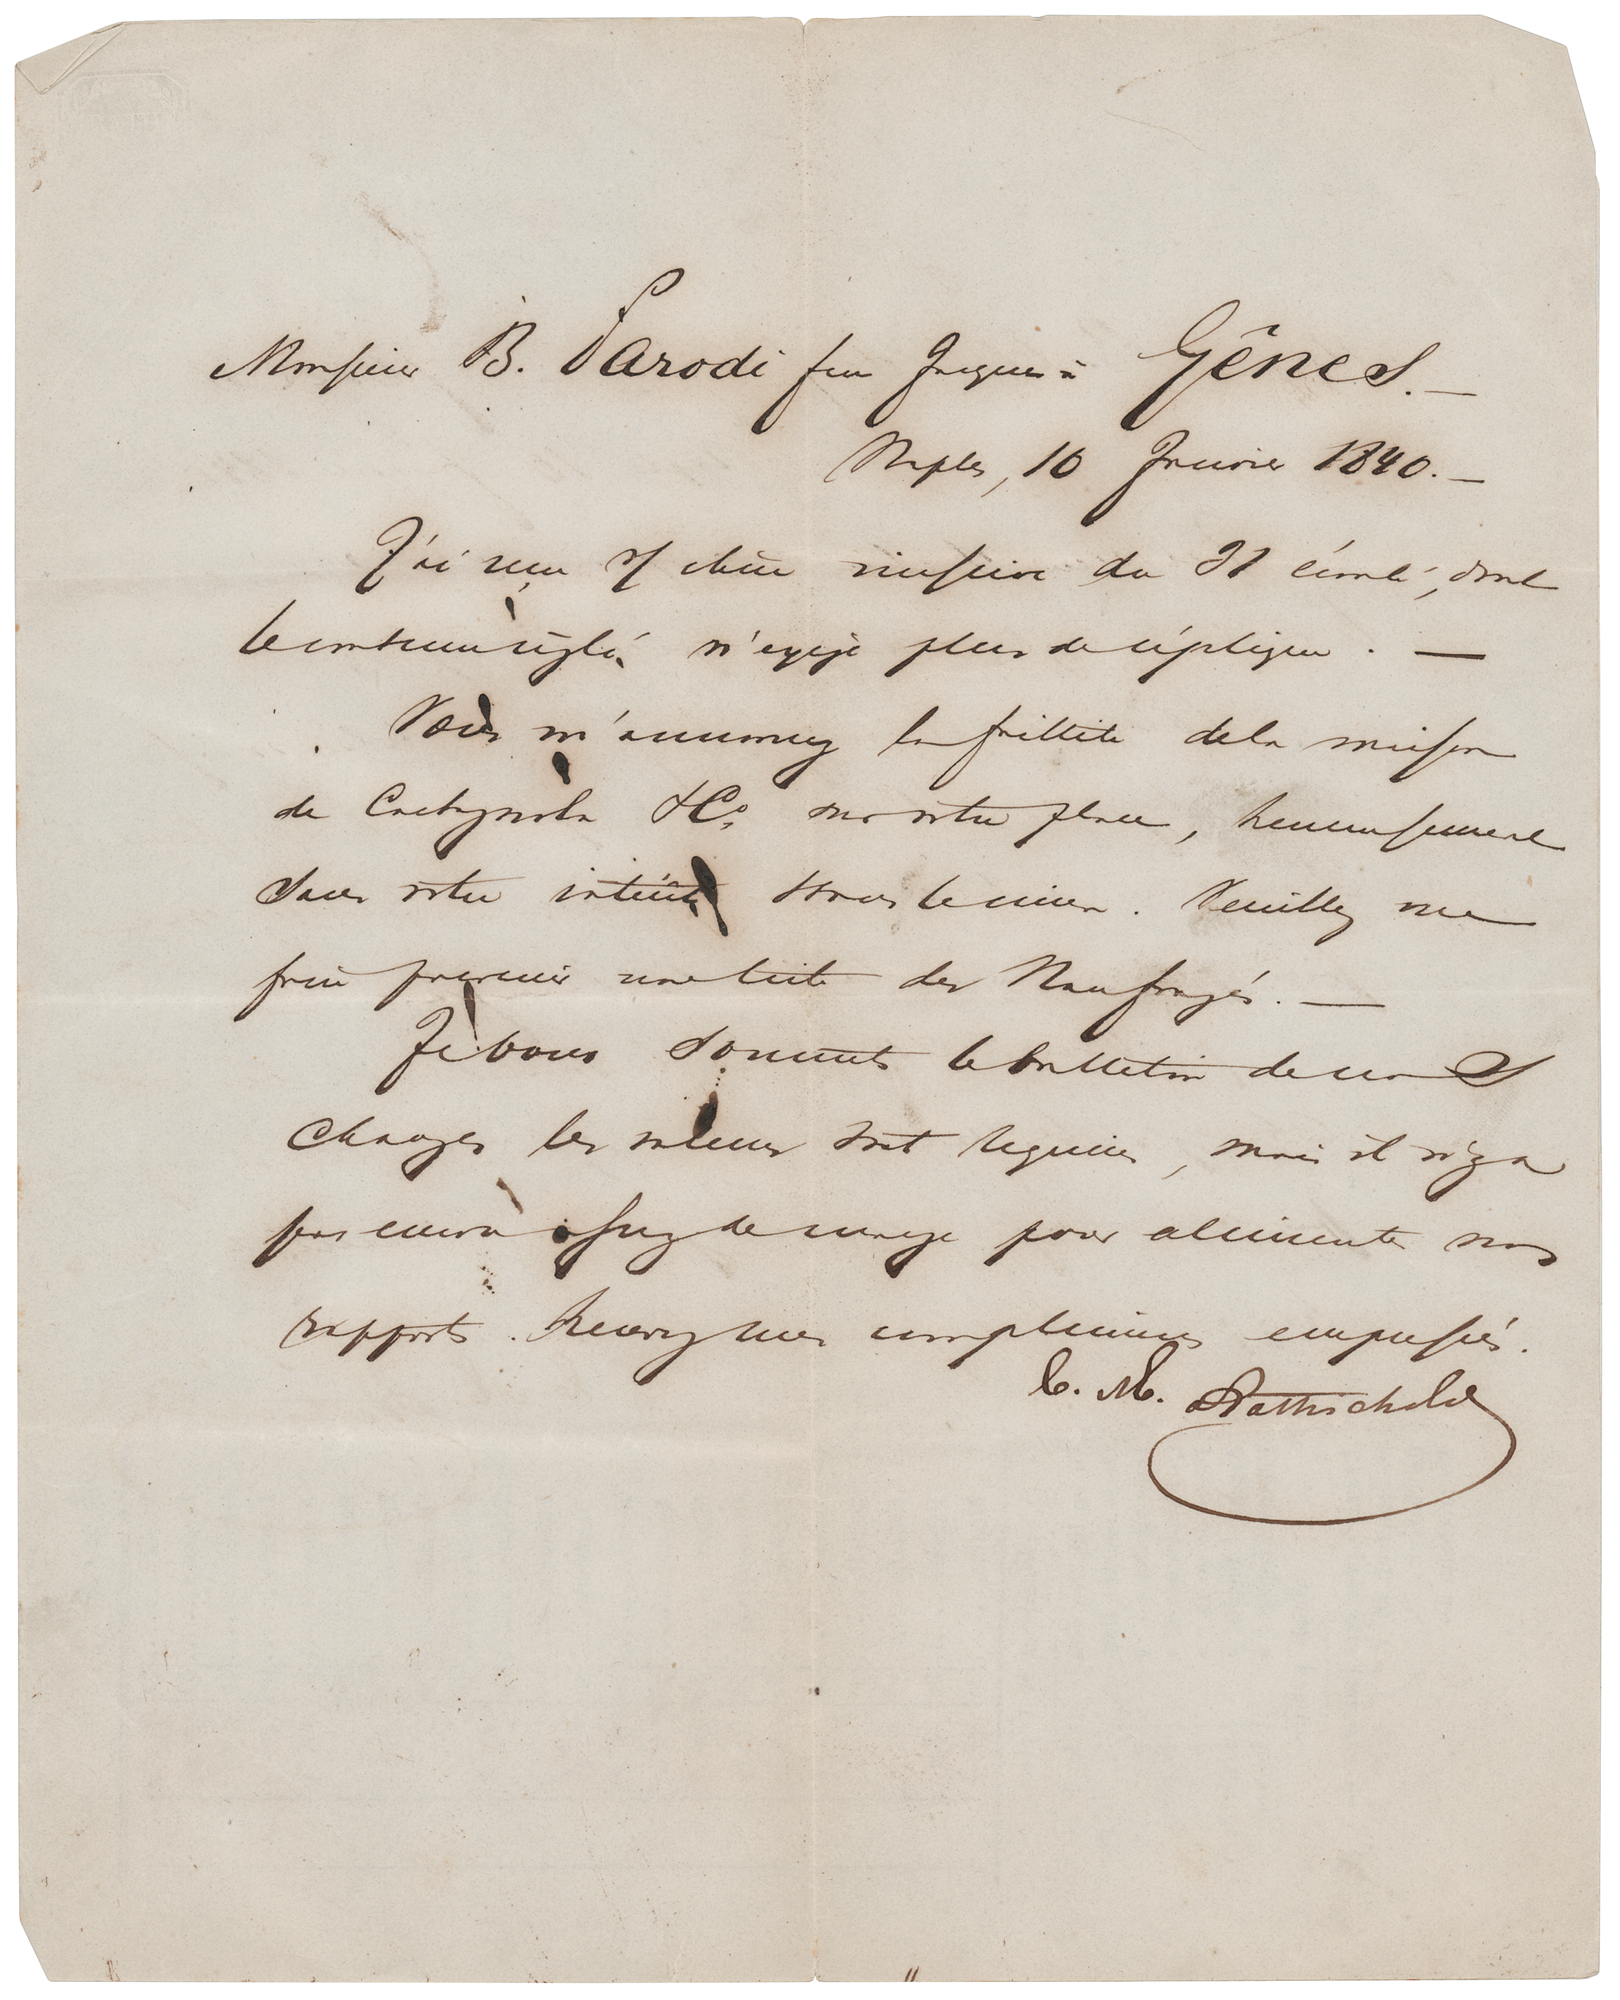 Monsieur B. Parodi feu Jacques à Gênes. —
Naples, 10 Janvier 1840. —
J'ai reçu v/ chère missive du 31 écoulé, dont
le contenu réglé n'exige plus de réplique. —
Vous m'annoncez la faillite de la maison
de Castagnola & Co. sur votre place, heureusement
sans votre intérêt & sans le mien. Veuillez me
faire parvenir une liste des Naufragés. —
Je vous soumets le bulletin de nos
changes les valeurs sont requises, mais il n'y a
pas encore assez de marge pour alimenter nos
rapports. Recevez mes complimens empressés.
C. M. Rothschild